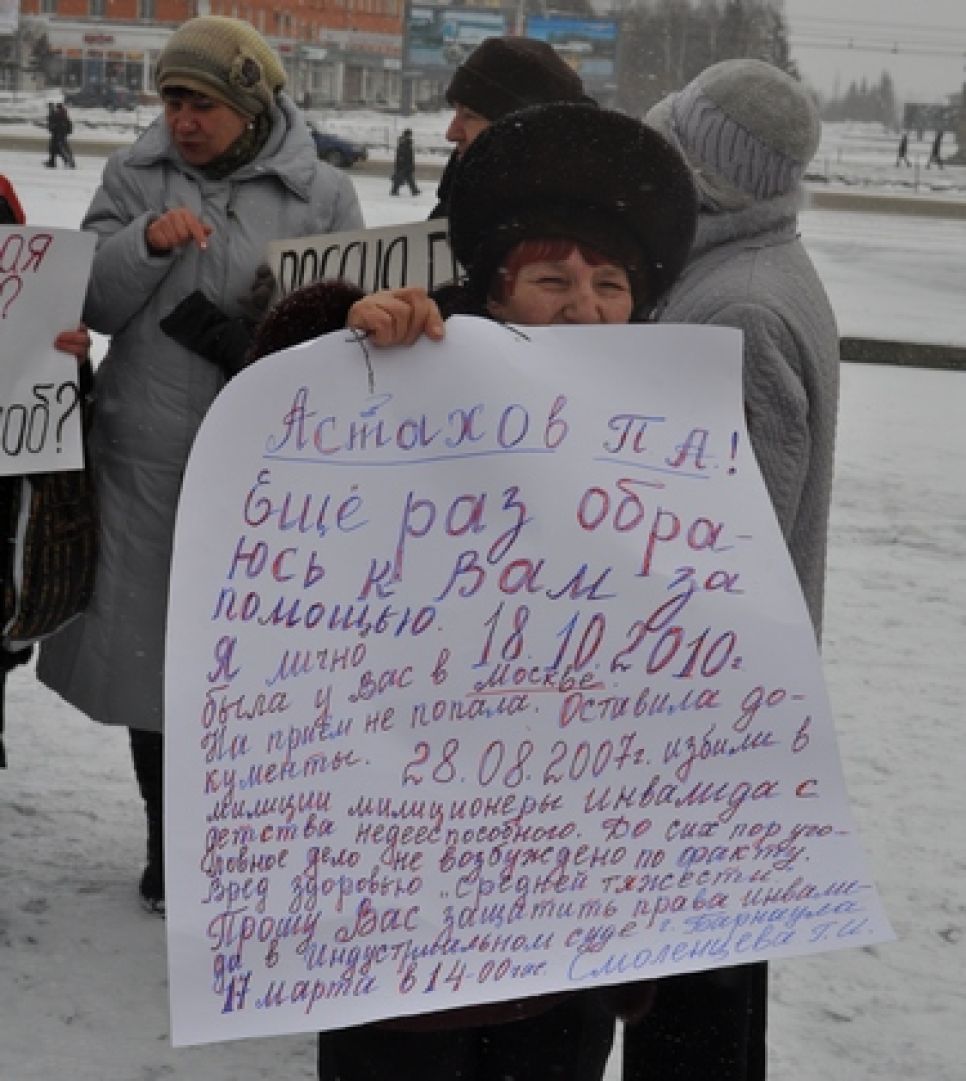 РОССИЯ
?
об?
Астахов П.А.!
Ещё раз обра-
юсь к Вам за
помощью.
Я лично 18.10.2010г.
была у Вас в Москве.
На приём не попала. Оставила до-
кументы. 28.08.2007г. избили в
милиции милиционеры инвалида с
детства недееспособного. До сих пор уго-
ловное дело не возбуждено по факту.
Вред здоровью „средней тяжести".
Прошу Вас защитить права инвали-
да в Индустриальном суде г. Барнаула
17 марта в 14-00 час. Смоленцева Т.И.